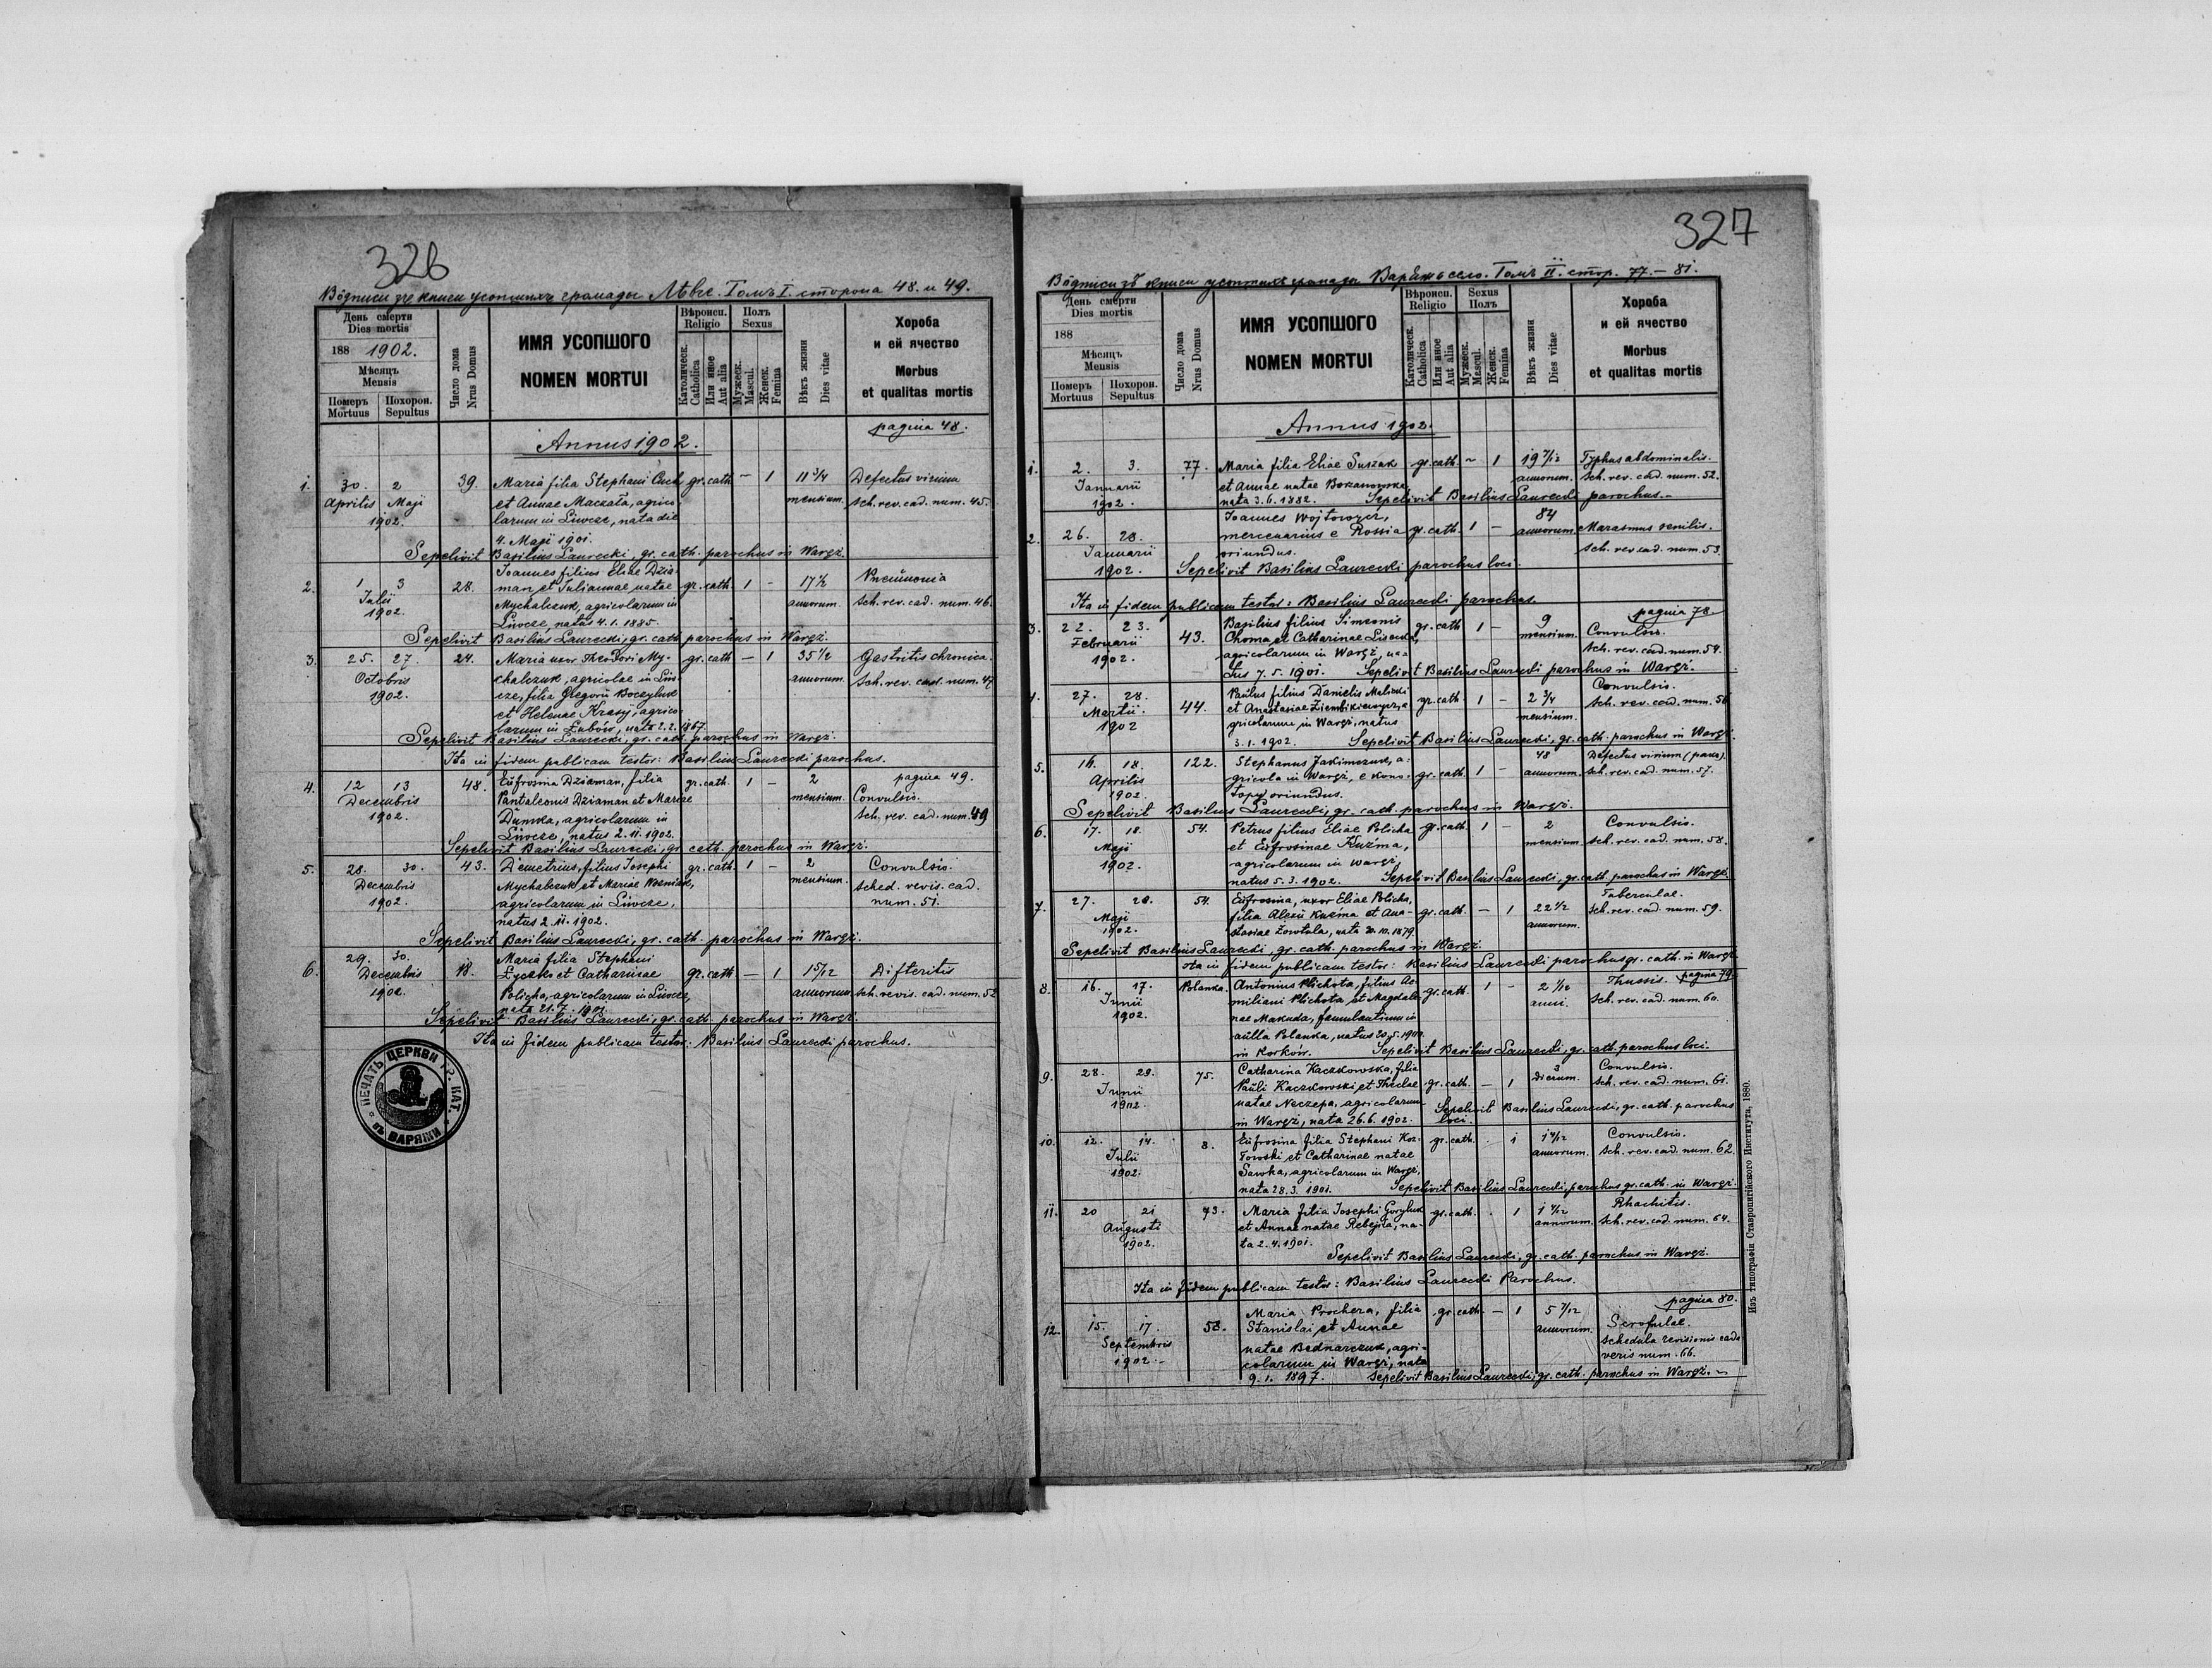 326
Вôдписи зъ книги усопшихъ громады Лѣвче. Томъ I. сторона 48. и 49.
День смерти
Dies mortis
188 1902.
Мѣсяць
Mensis
Померъ
Mortuus
Похорон.
Sepultus
Число дома
Nrus Domus
ИМЯ УСОПШОГО
NOMEN MORTUI
Вѣроисп.
Religio
Католическ.
Catholica
Или иное
Aut alia
Полъ
Sexus
Мужеск.
Mascul.
Женск.
Femina
Вѣкъ жизни
Dies vitae
Хороба
и ей ячество
Morbus
et qualitas mortis
pagina 48.
Annus 1902.
1. 30. 2 39. Maria filia Stephani Cuch gr. cath. – 1 11 3/4 Defectus virium
Aprilis Maji et Annae Maczała, agrico- mensium. Sch. rev. cad. num. 45.
1902. larum in Liwcze, nata die
4. Maji 1901.
Sepelivit Basilius Laurecki, gr. cath. parochus in Waręż.
2. 1 3 28. Joannes filius Eliae Dzia- gr. cath. 1 - 17 1/2 Pneumonia
Julii man et Juliannae natae annorum. Sch. rev. cad. num. 46.
1902. Mychalczuk, agricolarum in
Liwcze, natus 4. 1. 1885.
Sepelivit Basilius Laurecki, gr. cath. parochus in Waręż.
3. 25. 27. 24. Maria uxor Theodori My- gr. cath. – 1 35 1/2 Gastritis chronica.
Octobris chalczuk, agricolae in Liw- annorum. Sch. rev. cad. num. 47
1902. cze, filia Gregorii Boczyluk
et Helenae Krasij, agrico-
larum in Łubów, nata 2. 2. 1867.
Sepelivit Basilius Laurecki, gr. cath. parochus in Waręż.
Ita in fidem publicam testor: Basilius Laurecki parochus.
4. 12 13 48. Eufrosina Dziaman, filia gr. cath. 1 - 2 pagina 49.
Decembris Pantaleonis Dziaman et Mariae mensium. Convulsio.
1902. Dunska, agricolarum in Sch. rev. cad. num. 49
Liwcze, natus 2. 11. 1902.
Sepelivit Basilius Laurecki, gr. cath. parochus in Waręż.
5. 28. 30. 43. Demetrius, filius Josephi gr. cath. 1 - 2 Convulsio.
Decembris Mychalczuk et Mariae Wozniak, mensium. Sched. revis. cad.
1902. agricolarum in Liwcze, num. 51.
natus 2. 11. 1902.
Sepelivit Basilius Laurecki, gr. cath. parochus in Waręż.
6. 29. 30. 18. Maria filia Stephani
Decembris Łyczko et Catharinae gr. cath. – 1 1 5/12 Difteritis
1902. Policha, agricolarum in Liwcze, annorum. Sch. revis. cad. num. 52
nata 21. 7. 1901.
Sepelivit Basilius Laurecki, gr. cath. parochus in Waręż.
Ita in fidem publicam testor: Basilius Laurecki parochus.
ПЕЧАТЬ ЦЕРКВИ ГР. КАТ.
въ ВАРЯЖИ
327
Вôдписи зъ книги усопшихъ громады Варяжъ село. Томъ II. стор. 77. – 81.
День смерти
Dies mortis
188
Мѣсяць
Mensis
Померъ
Mortuus
Похорон.
Sepultus
Число дома
Nrus Domus
ИМЯ УСОПШОГО
NOMEN MORTUI
Вѣроисп.
Religio
Католическ.
Catholica
Или иное
Aut alia
Sexus
Полъ
Мужеск.
Mascul.
Женск.
Femina
Вѣкъ жизни
Dies vitae
Хороба
и ей ячество
Morbus
et qualitas mortis
Annus 1902.
1. 2. 3. 77. Maria filia Eliae Suszak gr. cath. ~ 1 19 7/12 Typhus abdominalis.
Januarii et Annae natae Bokanowska, annorum. Sch. rev. cad. num. 52.
1902. nata 3. 6. 1882. Sepelivit Basilius Laurecki parochus.
2. 26. 28. Joannes Wojtowycz, 84
Januarii mercenarius e Rossia gr. cath. 1 – annorum. Marasmus senilis.
1902. oriundus. Sch. rev. cad. num. 53.
Sepelivit Basilius Laurecki parochus loci.
Ita in fidem publicam testor: Basilius Laurecki parochus.
pagina 78.
3. 22. 23. 43. Basilius filius Simeonis gr. cath. 1 – 9 Convulsio.
Februarii Choma et Catharinae mensium. Sch. rev. cad. num. 54.
1902. agricolarum in Waręż, na-
tus 7. 5. 1901. Sepelivit Basilius Laurecki parochus in Waręż.
4. 27. 28. 44. Paulus filius Danielis Malicki gr. cath. 1 – 2 3/4 Convulsio.
Martii et Anastasiae Ziembikiewycz, a- mensium. Sch. rev. cad. num. 56
1902 gricolarum in Waręż, natus
3. 1. 1902. Sepelivit Basilius Laurecki, gr. cath. parochus in Waręż.
5. 16. 18. 122. Stephanus Jakimczuk, a- 48 Defectus virium
Aprilis gricola in Waręż, e Kono- gr. cath. 1 – annorum. Sch. rev. cad. num. 57.
1902. topy oriundus.
Sepelivit Basilius Laurecki, gr. cath. parochus in Waręż.
6. 17. 18. 54. Petrus filius Eliae Policha gr. cath. 1 – 2 Convulsio.
Maji et Eufrosinae Kuźma, mensium. Sch. rev. cad. num. 58.
1902. agricolarum in Waręż,
natus 5. 3. 1902. Sepelivit Basilius Laurecki, gr. cath. parochus in Waręż.
7. 27. 28. 54. Eufrosina, uxor Eliae Policha, Tuberculae.
Maji filia Alexii Kuźma et Ana- gr. cath. – 1 22 1/2 Sch. rev. cad. num. 59.
1902. stasiae Zowtula, nata 30. 10. 1879. annorum.
Sepelivit Basilius Laurecki, gr. cath. parochus in Waręż.
Ita in fidem publicam testor: Basilius Laurecki parochus gr. cath. in Waręż.
8. 16. 17. Polanka. Antonius Plichota, filius Ae- gr. cath. 1 – 2 1/12 Thussis. pagina 79.
Junii miliani Plichota, et Magdale- anni. Sch. rev. cad. num. 60.
1902. nae Makuda, famulantium in
aulla Polanka, natus 20. 5. 1900.
in Korków. Sepelivit Basilius Laurecki, gr. cath. parochus loci.
9. 28. 29. 75. Catharina Kaczkowska, filia 3 Convulsio.
Junii Pauli Kaczkowski et Theclae gr. cath. – 1 dierum. Sch. rev. cad. num. 61.
1902. natae Neczepa, agricolarum Sepelivit Basilius Laurecki, gr. cath. parochus
in Waręż, nata 26. 6. 1902. loci.
10. 12. 14. 8. Eufrosina filia Stephani Koz- gr. cath. . 1 1 4/12 Convulsio.
Julii łowski et Catharinae natae annorum. Sch. rev. cad. num. 62.
1902. Sawka, agricolarum in Waręż,
nata 28. 3. 1901. Sepelivit Basilius Laurecki parochus gr. cath. in Waręż.
11. 20 21 73. Maria filia Josephi Goryluk gr. cath. . 1 1 4/12 Rhachitis.
Augusti et Annae natae Rebejza, na- annorum. Sch. rev. cad. num. 64.
1902. ta 2. 4. 1901.
Sepelivit Basilius Laurecki, gr. cath. parochus in Waręż.
Ita in fidem publicam testor: Basilius Laurecki Parochus.
pagina 80.
12. 15. 17. 58. Maria Prochera, filia gr. cath. – 1 5 7/12 Scrofulae.
Septembris Stanislai et Annae annorum. Schedula revisionis cada-
1902. natae Bednarczuk, agri- veris num. 66.
colarum in Waręż, nata
9. 1. 1897. Sepelivit Basilius Laurecki, gr. cath. parochus in Waręż.
Изъ типографіи Ставропигійского Института, 1880.